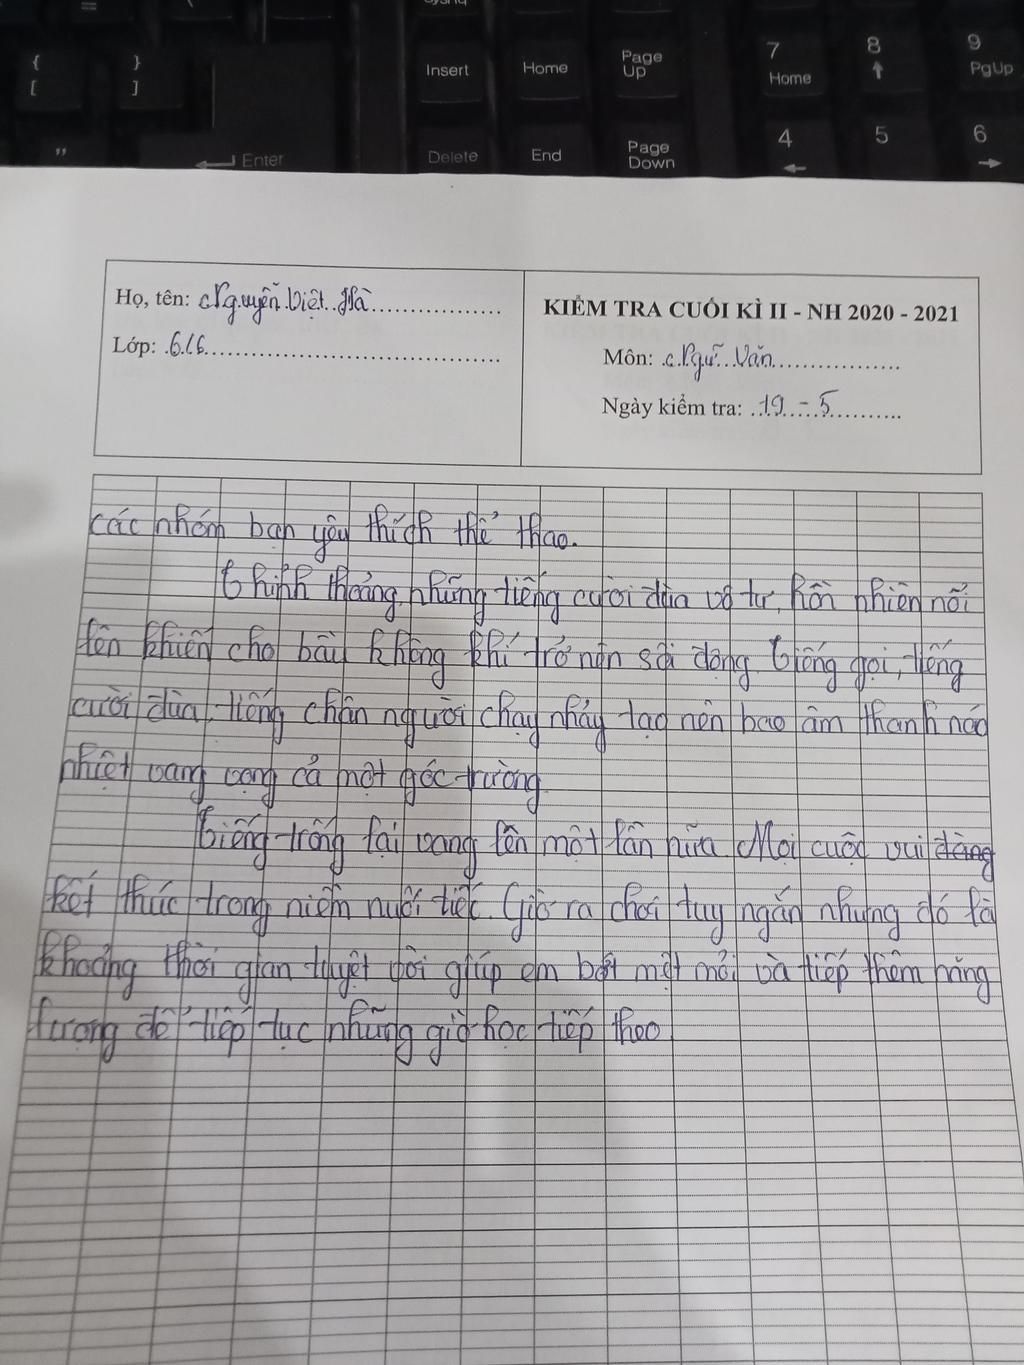 SysRq
{
[
}
]
"
Enter
Insert
Home
Page
Up
Delete
End
Page
Down
7
Home
8
9
PgUp
4
5
6
Họ, tên: Nguyễn Việt Hà
Lớp: 6.16
KIỂM TRA CUỐI KÌ II - NH 2020 - 2021
Môn: Ngữ Văn
Ngày kiểm tra: 19 - 5
các nhóm bạn yêu thích thể thao.
Thỉnh thoảng, những tiếng cười đùa vô tư, hồn nhiên nổi
lên khiến cho bầu không khí trở nên sôi động. Tiếng gọi, tiếng
cười đùa, tiếng chân người chạy nhảy tạo nên bao âm thanh náo
nhiệt vang vọng cả một góc trường.
Tiếng trống lại vang lên một lần nữa. Mọi cuộc vui đàng
kết thúc trong niềm nuối tiếc. Giờ ra chơi tuy ngắn nhưng đó là
khoảng thời gian tuyệt vời giúp em bớt mệt mỏi và tiếp thêm năng
lượng để tiếp tục những giờ học tiếp theo.